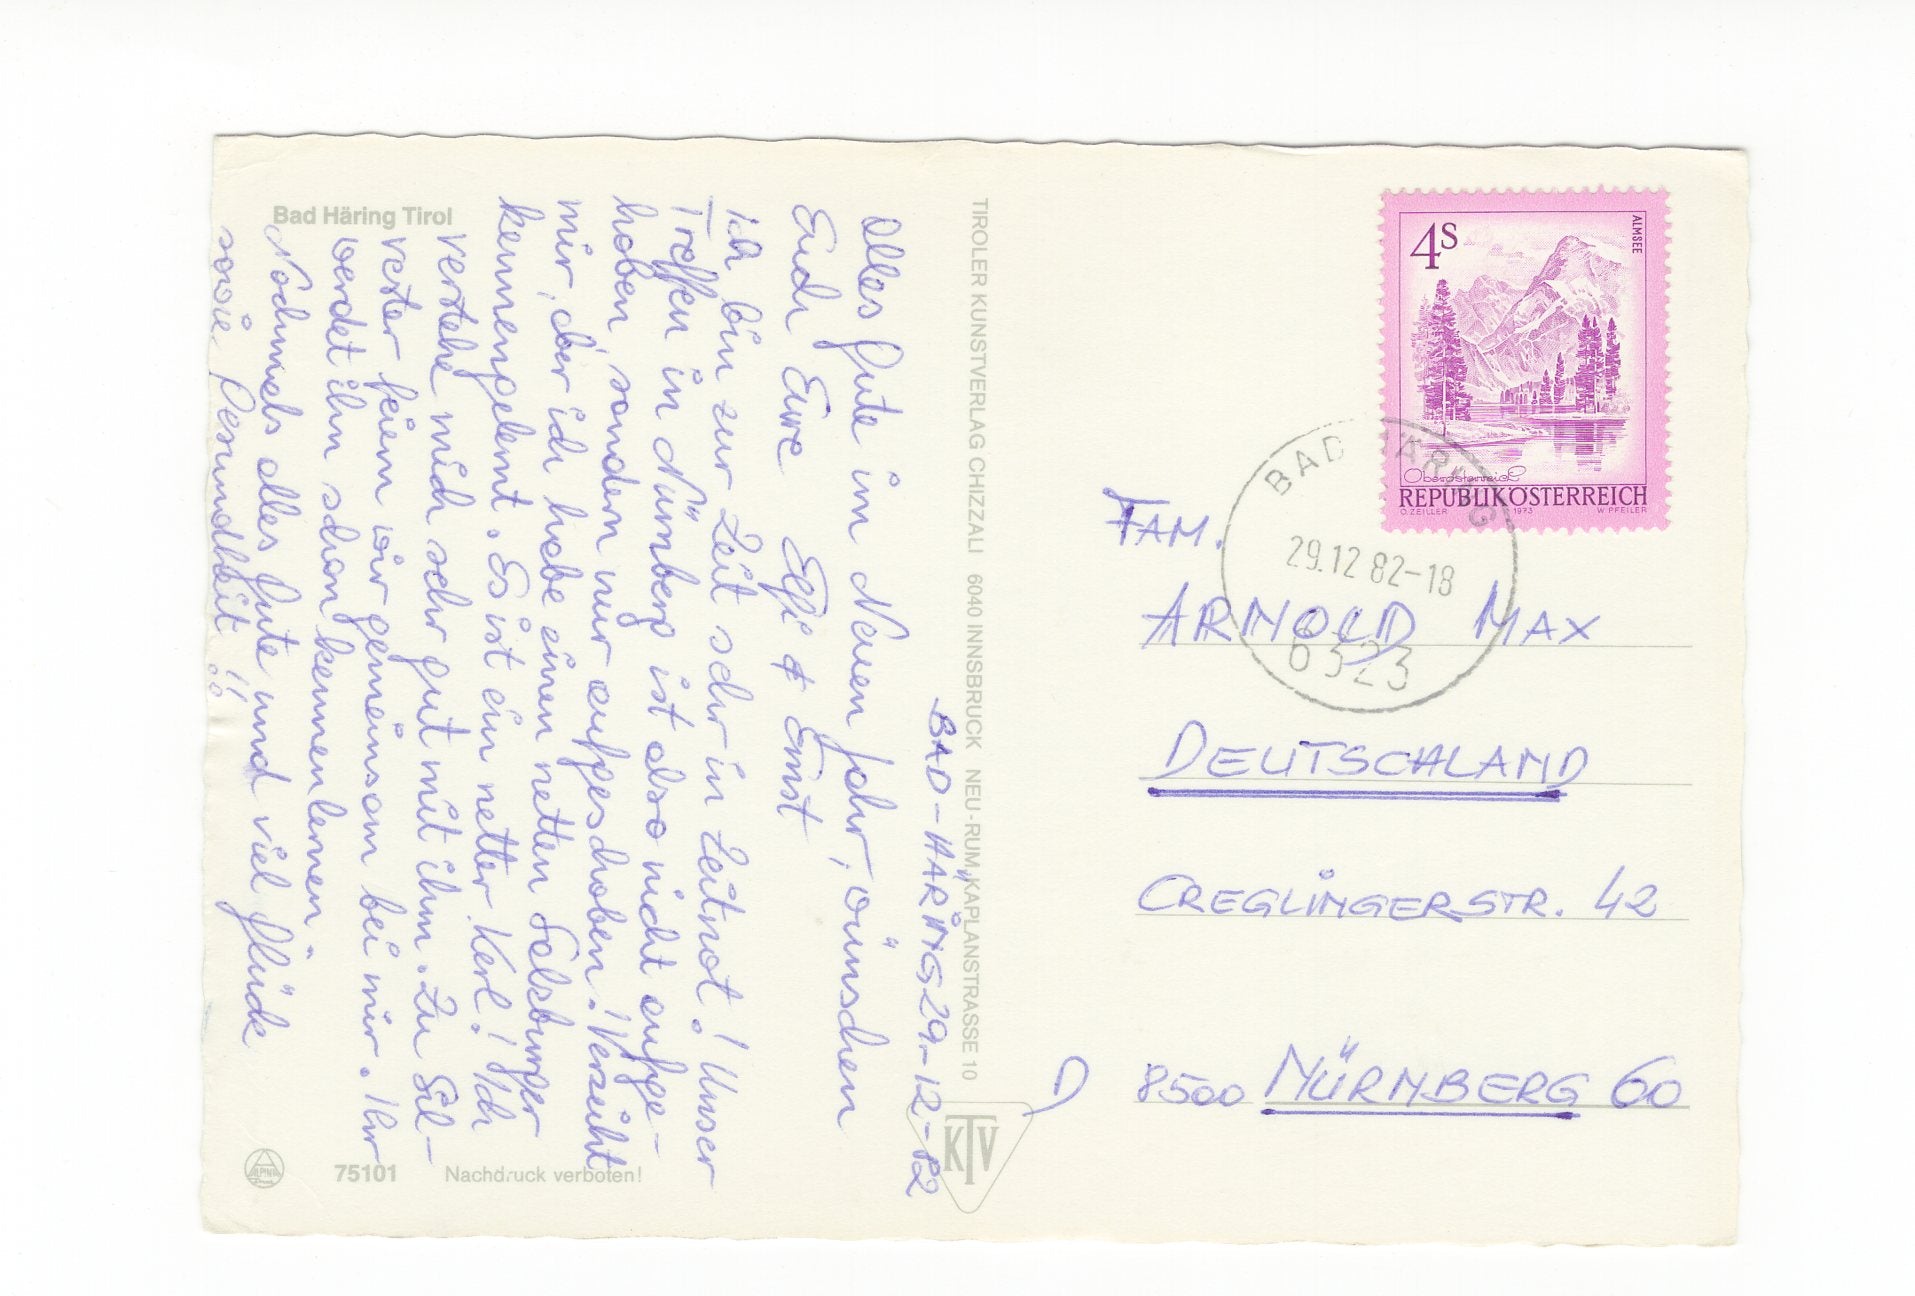 Bad Häring Tirol
BAD-HÄRING 29-12-82
Alles Gute im Neuen Jahr, wünschen
Euch Eure Elfi & Ernst
Ich bin zur Zeit sehr in Zeitnot! Unser
Treffen in Nürnberg ist also nicht aufge-
hoben, sondern nur aufgeschoben! Verzeiht
mir, aber ich habe einen netten Salzburger
kennengelernt. Es ist ein netter Kerl! Ich
verstehe mich sehr gut mit ihm. Zu Sil-
vester feiern wir gemeinsam bei mir. Ihr
werdet ihn schon kennenlernen.
Nochmals alles Gute und viel Glück
sowie Gesundheit!!
TIROLER KUNSTVERLAG CHIZZALI 6040 INNSBRUCK NEU-RUM, KAPLANSTRASSE 10
KTV
ALPINA
75101 Nachdruck verboten!
4S
ALMSEE
Oberösterreich
REPUBLIK ÖSTERREICH
O. ZEILLER 1973 W. PFEILER
BAD HÄRING
29.12.82-18
6323
FAM.
ARNOLD MAX
DEUTSCHLAND
CREGLINGERSTR. 42
D 8500 NÜRNBERG 60